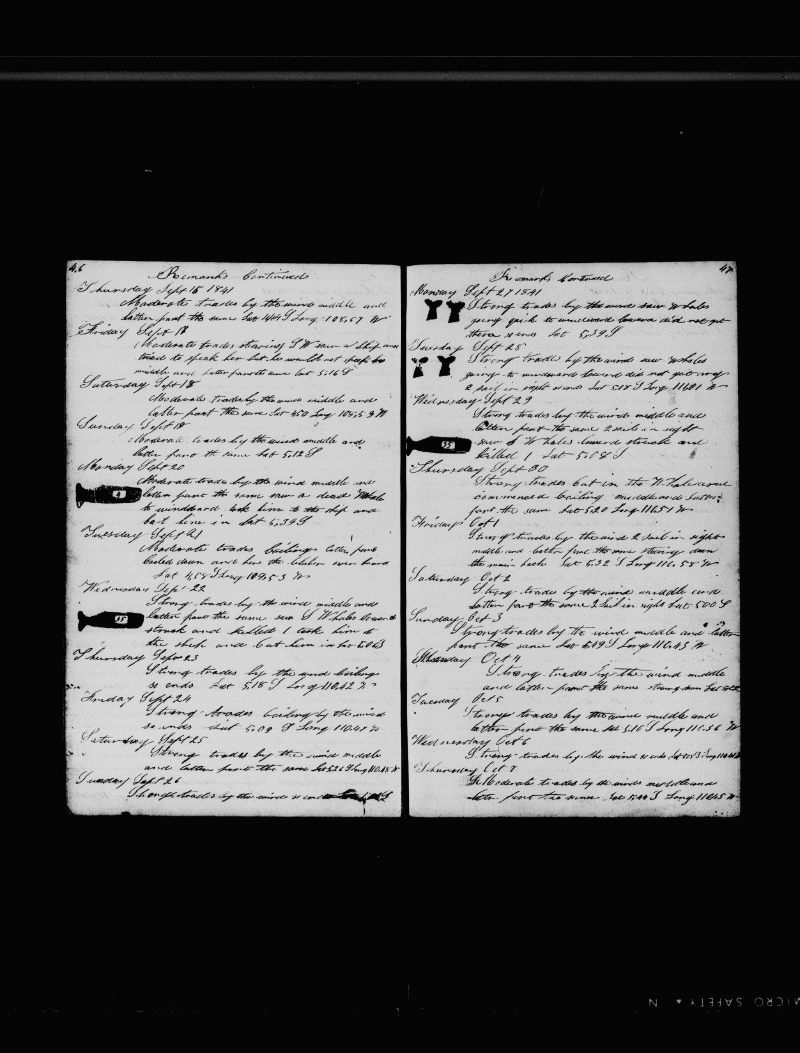 46
Remarks Continued
Thursday Sept 16 1841
Moderate trades by the wind middle and
latter part the same Lat 4,44 S Long 108,57 W
Friday Sept 17
Moderate trades steering S W saw a ship and
tried to speak her but he would not speak
middle and latter part the same Lat 5,16 S
Saturday Sept 18
Moderate trades by the wind middle and
latter part the same Lat 4,50 Long 109,59 W
Sunday Sept 19
Moderate trades by the wind middle and
latter part the same Lat 5,12 S
Monday Sept 20
Moderate trades by the wind middle
latter part the same saw a dead Whale
to windward took him to the ship and
cut him in Lat 5,39 S
4
Tuesday Sept 21
Moderate trades boiling latter part
boiled down and over board
Lat 4,58 S Long 109,53 W
Wednesday Sept 22
Strong trades by the wind middle and
latter part the same saw S Whales lowered
struck and killed 1 took him to
the ship and cut him in Lat 5,06 S
35
Thursday Sept 23
Strong trades by the wind boiling
so ends Lat 5,18 S Long 110,42 W
Friday Sept 24
Strong trades boiling by the wind
so ends Lat 5,09 S Long 110,41 W
Saturday Sept 25
Strong trades by the wind middle
and latter part the same Lat 5,26 S Long 110,45 W
Sunday Sept 26
Strong trades by the wind so ends
47
Remarks Continued
Monday Sept 27 1841
Strong trades by the wind saw Whales
going quick to windward lowered did not get
there so ends Lat 5,39 S
Tuesday Sept 28
Strong trades by the wind saw Whales
going to windward lowered did not get any
2 sail in sight so ends Lat 5,18 S Long 116,01 W
Wednesday Sept 29
Strong trades by the wind middle and
latter part the same 2 sail in sight
saw S Whales lowered struck and
killed 1 Lat 5,08 S
35
Thursday Sept 30
Strong trades cut in the Whale and
commenced boiling middle and latter
part the same Lat 5,20 Long 116,51 W
Friday Oct 1
Strong trades by the wind 2 sail in sight
middle and latter part the same
the main Lat 5,32 S Long 116,58 W
Saturday Oct 2
Strong trades by the wind middle and
latter part the same 2 sail in sight Lat 5,00 S
Sunday Oct 3
Strong trades by the wind middle and latter
part the same Lat 5,19 S Long 116,45 W
Monday Oct 4
Strong trades by the wind middle
and latter part the same
Tuesday Oct 5
Strong trades by the wind middle and
latter part the same Lat 5,10 S Long 116,36 W
Wednesday Oct 6
Strong trades by the wind so ends
Thursday Oct 7
Moderate trades by the wind middle and
latter part the same Lat 5,44 S Long 116,45 W
MICRO SAFETY ▲ N